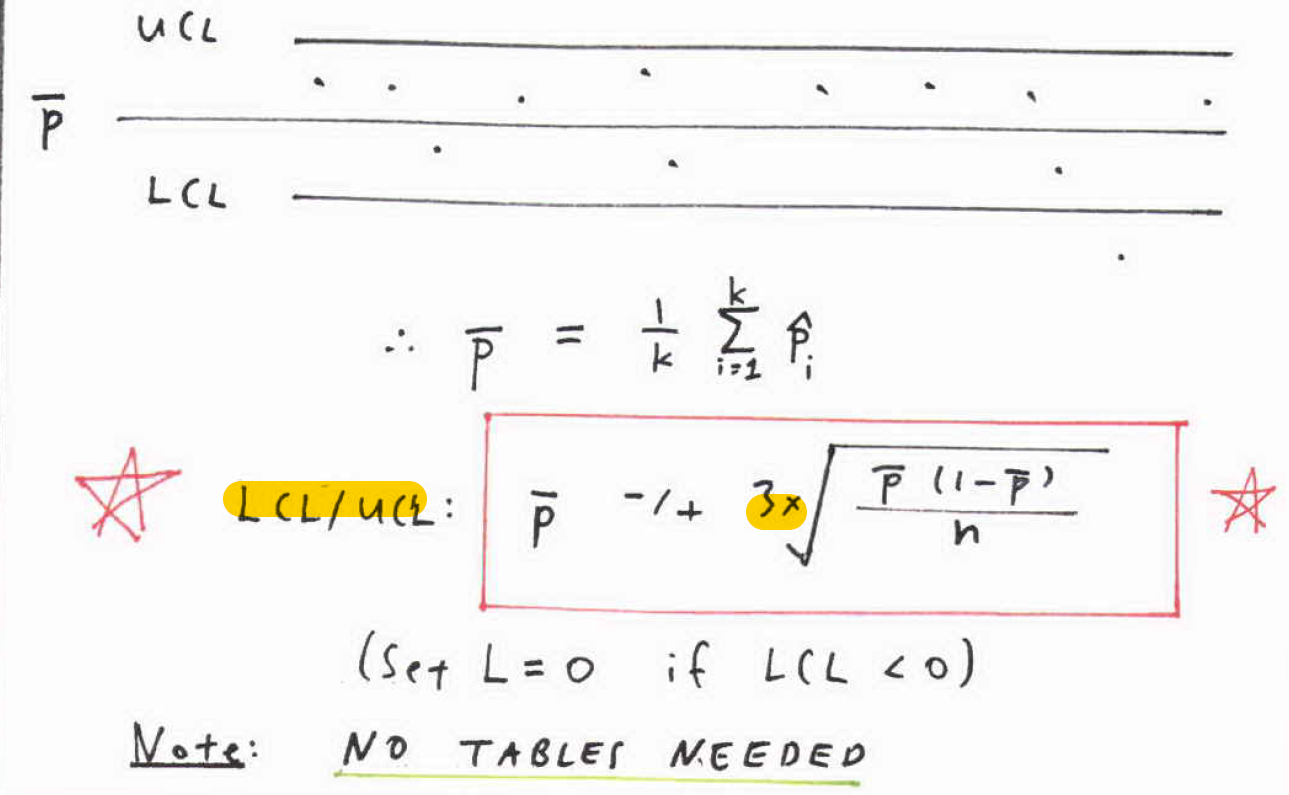 UCL
p̄
LCL
∴ p̄ = 1/k Σ_{i=1}^{k} p̂_i
LCL/UCL: p̄ -/+ 3× √( p̄ (1-p̄) / n )
(Set L = 0 if LCL < 0)
Note: NO TABLES NEEDED